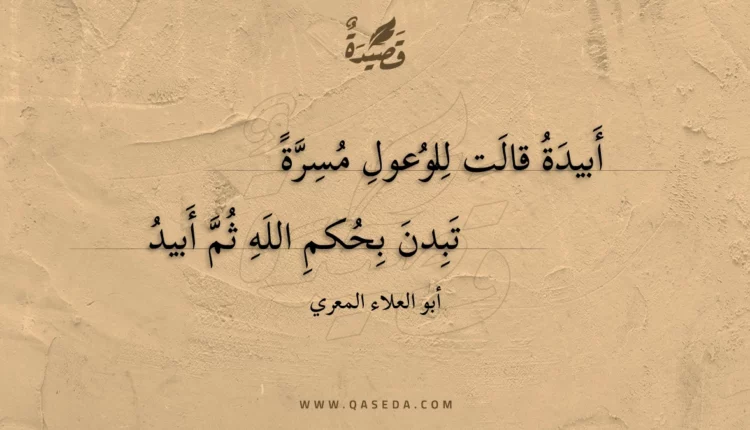 قَصِيدَةٌ
أَبيدَةُ قالَت لِلوُعولِ مُسِرَّةً
تَبِدنَ بِحُكمِ اللَهِ ثُمَّ أَبيدُ
أبو العلاء المعري
WWW.QASEDA.COM